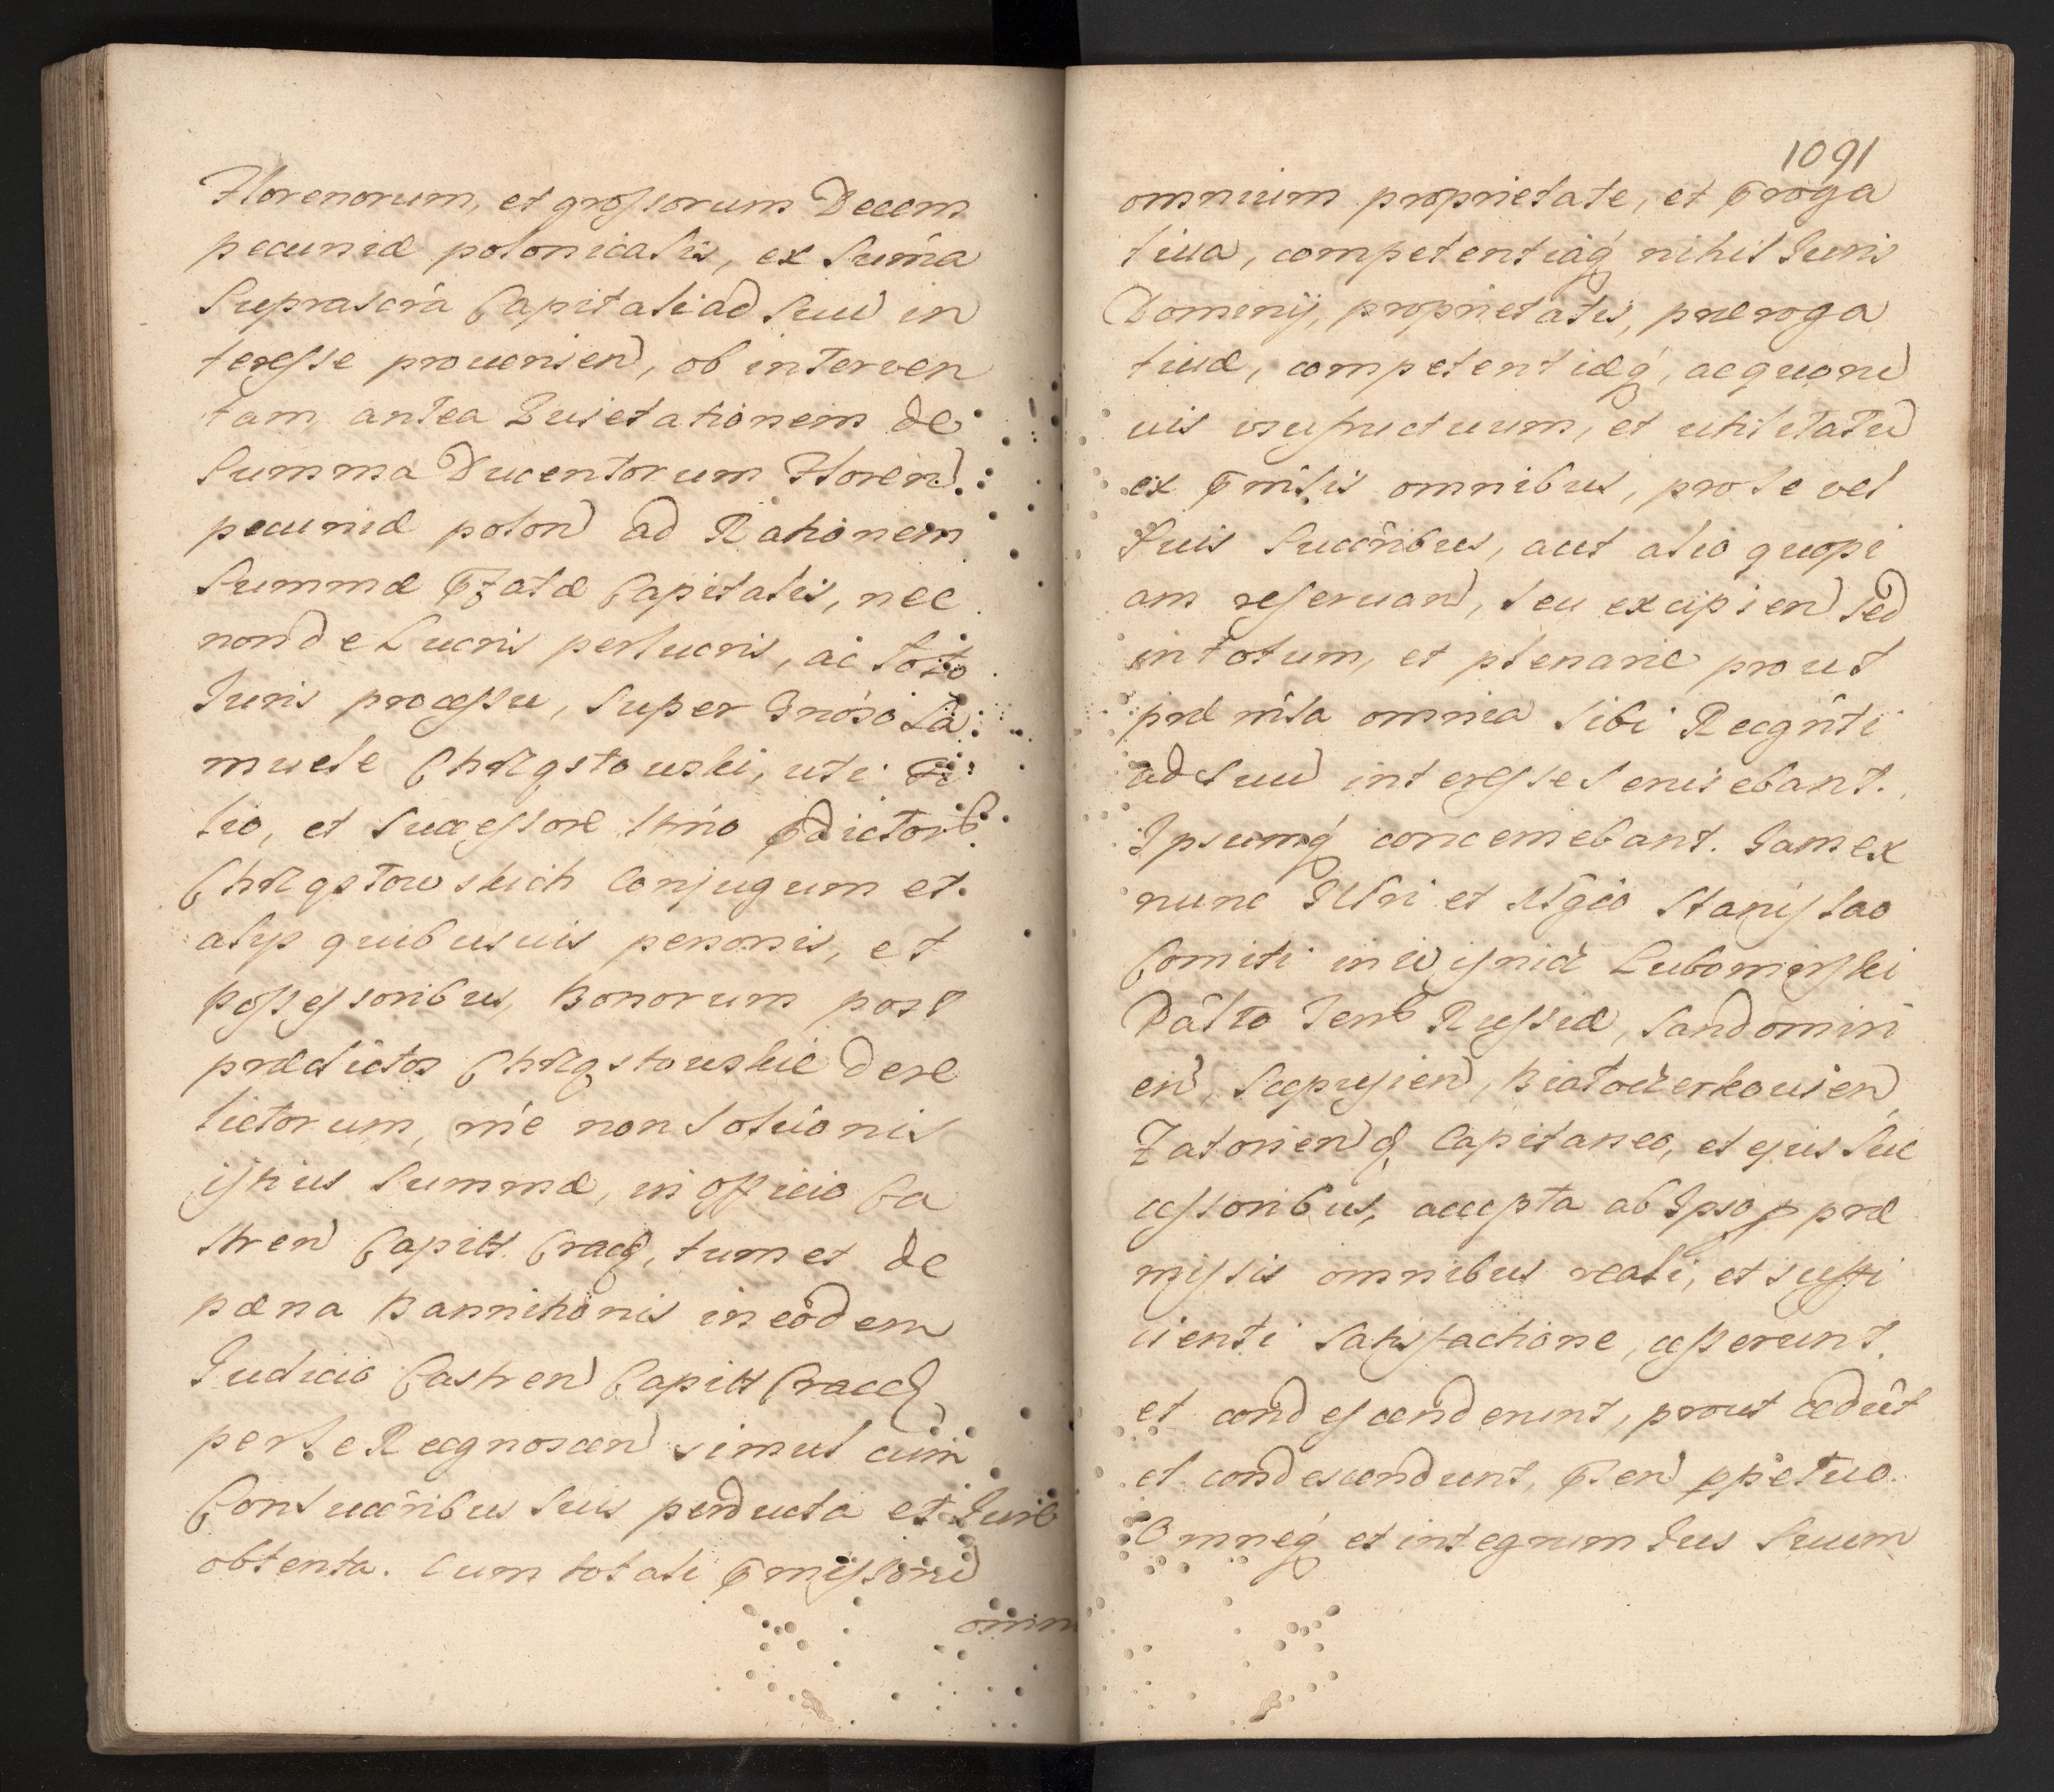 Florenorum, et grossorum Decem
pecuniæ polonicalis, ex Sum̃a
Suprascrã Capitali ad Suũ in
teresse prouenien, ob interven
tam antea Quietationem de
Summa Ducentorum Floren
pecuniæ polon ad Rationem
Summæ Capitalis, nec
non de Lucris perlucris, ac toto
Juris processu, Super Gnõso Sa
muele Chrząstowski, uti Fi
lio, et Successore
Chrząstowskich Conjugum et
alijs quibusuis personis, et
possessoribus, Bonorum post
prædictos Chrząstowskie dere
lictorum, rñe non Solũonis
istius Summæ, in officio Ca
stren Capitt Cracc, tum et de
pæna Bannitionis in eodem
Judicio Castren Capitt Cracc
per Se Recgnoscen simul cum
Consuccõribus Suis perducta et Jure
obtenta. Cum totali omissione
omn
1091
omnium proprietate, et Proga
tiua, competentiaq́ nihil Juris
Dominij, proprietatis, præroga
tiuæ, competentiæq́, ac quorũ
uis usufructuum, et utilitatũ
ex Pmĩsis omnibus, pro se vel
Suis Succõribus, aut alio quopi
am reseruan, Seu excipien Sed
in totum, et plenarie prout
præmĩsa omnia Sibi Recgñti
ad Suũ interesse Seruiebant.
Ipsumq́ concernebant. Jam ex
nunc Illri et Mg̃co Stanislao
Comiti in Wisnicz Lubomirski
Pal̃to Terrʳ Russiæ, Sandomiri
en, Scepusien, Białocerkouien
Zatorienq́ Capitaneo, et ejus Suc
cessoribus, accepta ab Ipso p præ
missis omnibus reali, et suffi
cienti Satisfactione, cesserunt
et condescenderunt, prout cedũt
et condescendunt, Psen ppetuo.
Omneq́ et integrum Jus Suum